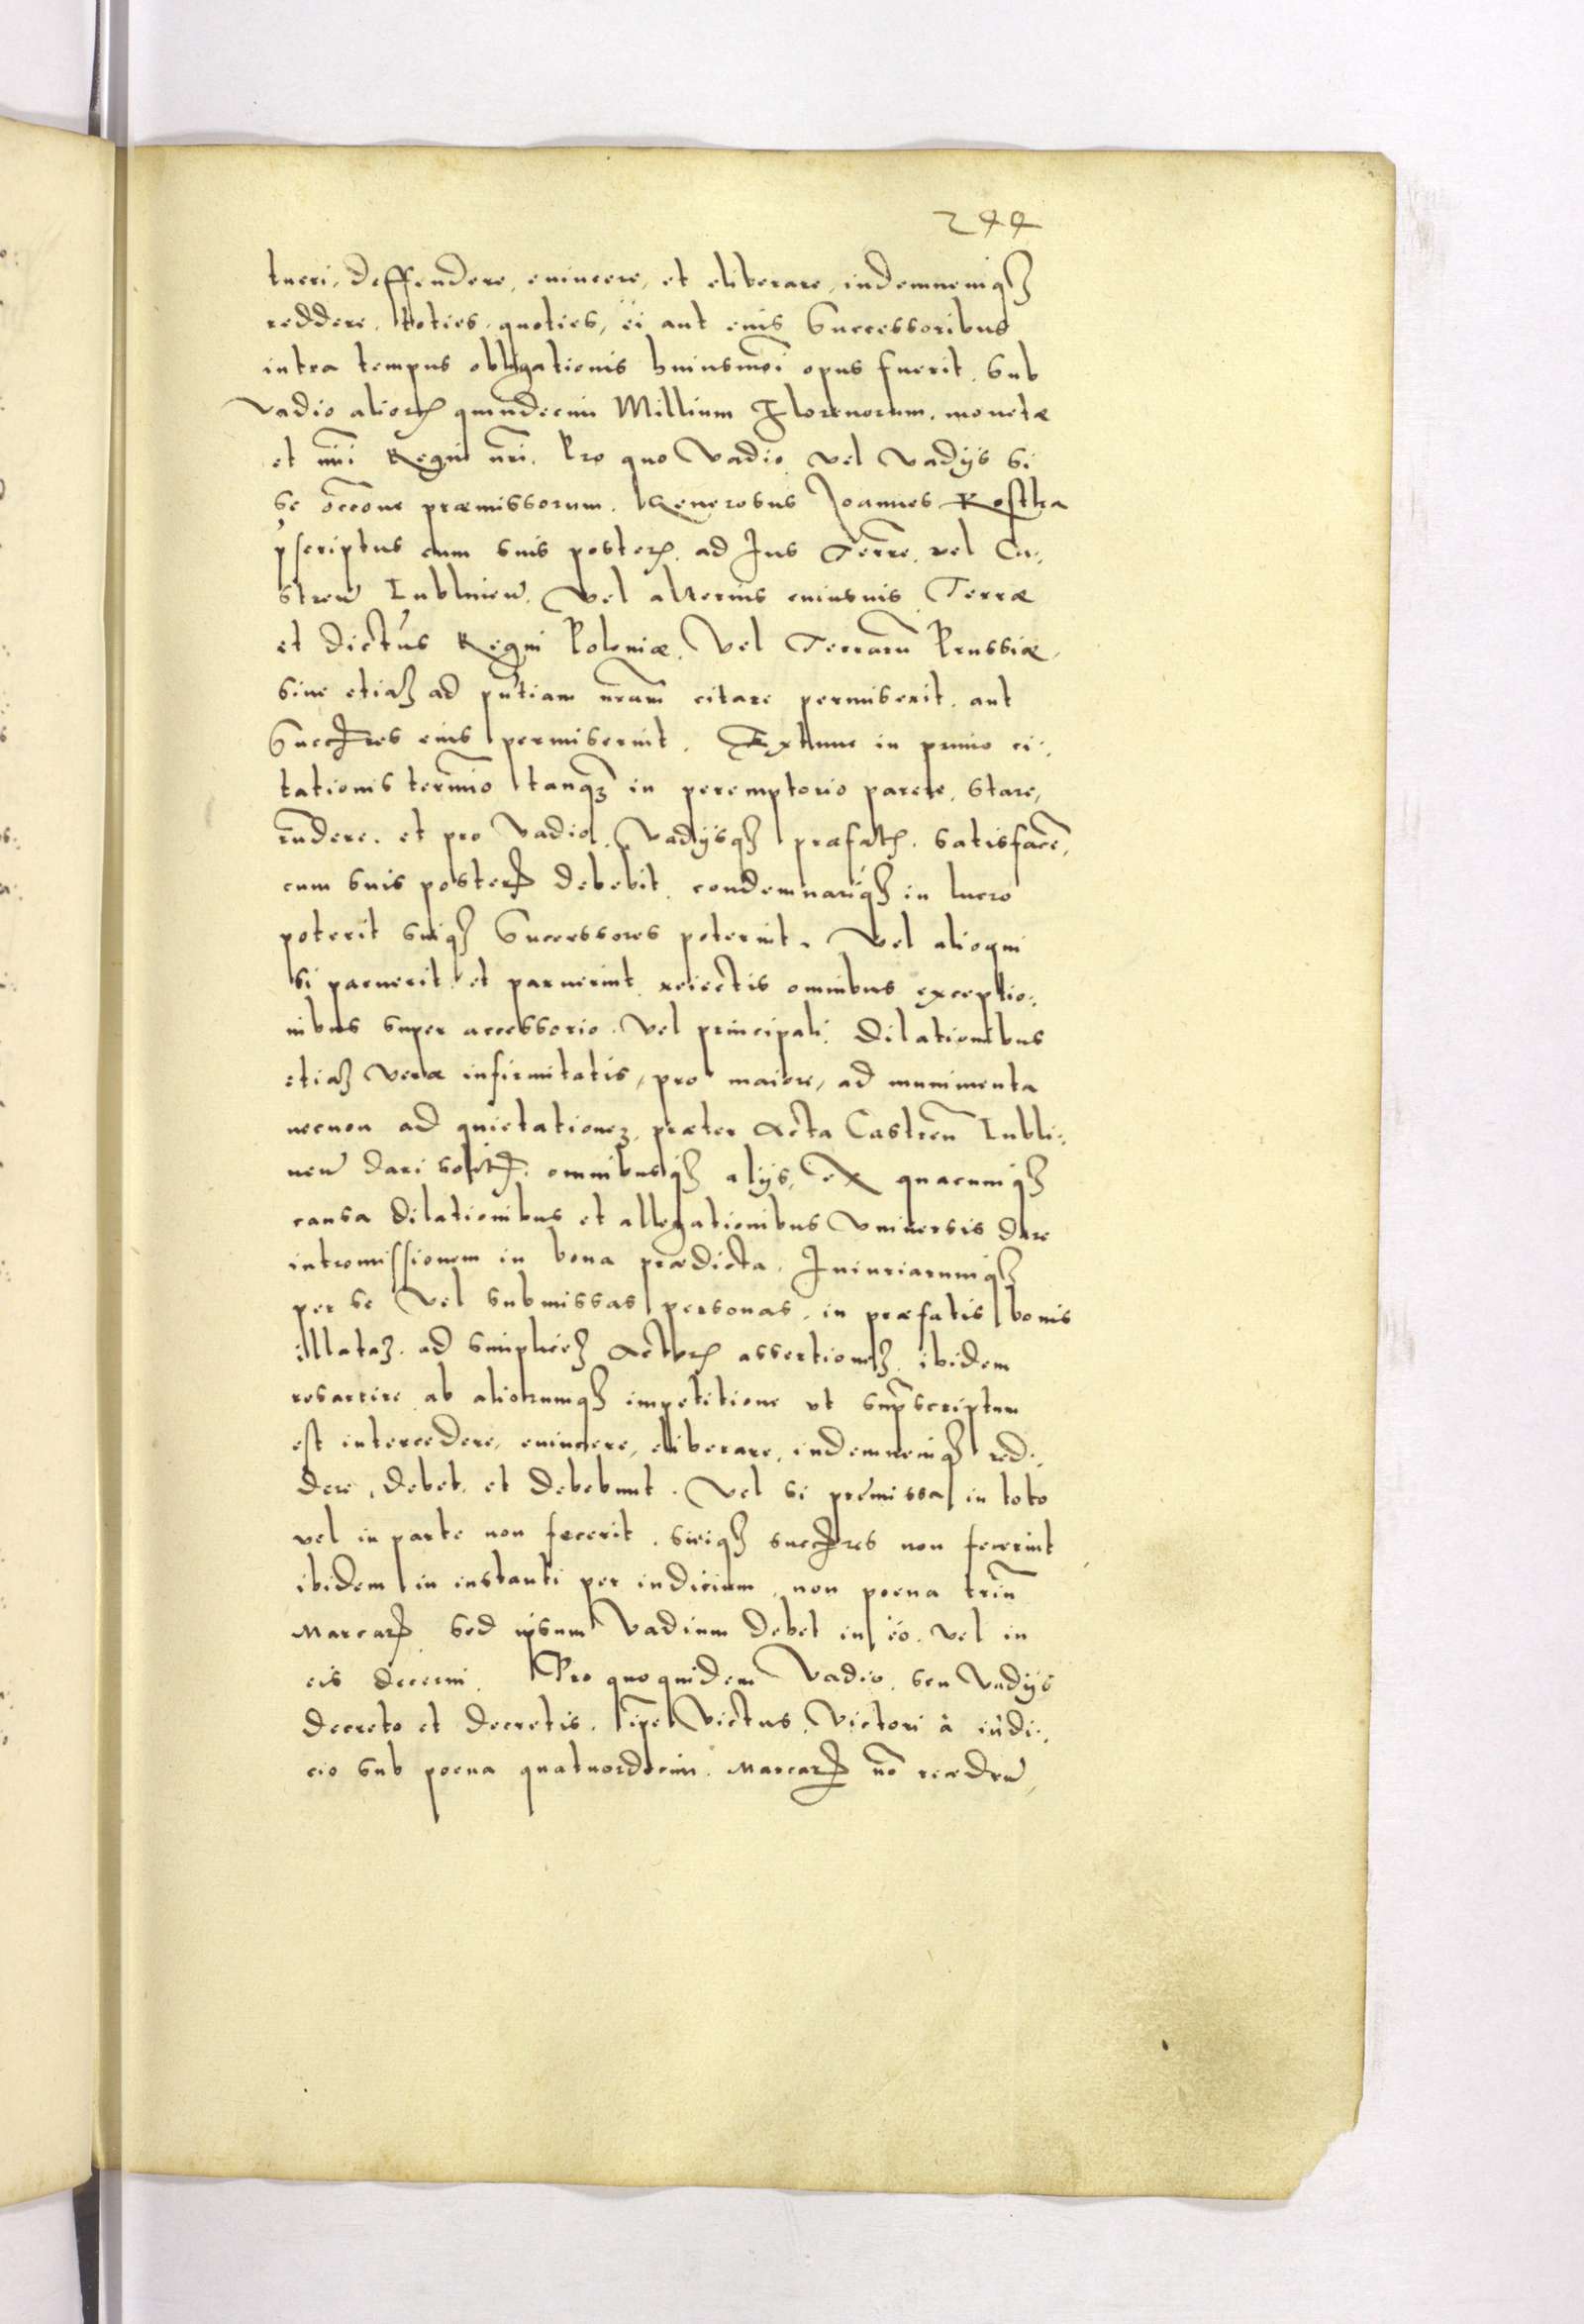 244
tueri, deffendere, euincere, et eliberare, indemnemq3
reddere, toties, quoties, ei aut eius Successoribus
intra tempus obligationis huiusmõi opus fuerit, Sub
Vadio alior quindecim Millium Florenorum, monetæ
et nũi Regni nr̃i. Pro quo Vadio vel Vadijs si
se occõne præmissorum. Generosus Joannes Kostka
p̃scriptus cum suis poster, ad Jus Terrre, vel Ca:,
stren̄ Lublinen̄. Vel alterius cuiusuis Terræ
et dictus Regni Poloniæ, Vel Terrarũ Prussiæ,
siue etia3 ad pñtiam nr̃am citare permiserit, aut
Succres eius permiserint. Extunc in primo ci:,
tationis termĩo tanq3 in peremptorio parere, stare,
rñdere, et pro Vadio, Vadijsq3 præfat, satisfacẽ,
cum suis poster debebit, condemnariq3 in lucro
poterit suiq3 Successores poterint. Vel alioqui
si paruerit et paruerint reiectis omnibus exceptio:,
nibus super accessorio, vel principali, dilationibus
etia3 veræ infirmitatis, pro maiore, ad munimenta
necnon ad quietatione3, præter Acta Castren̄ Lubli:,
nen̄ dari solit, omnibusq3 alijs, ex quacumq3
causa dilationibus et allegationibus Vniuersis dare
intromissionem in bona prædicta, Iniuriarumq3
per se Vel submissas personas, in præfatis bonis
illata3, ad simplice3 Actor assertione3, ibidem
resarcire, ab aliorumq3 impetitione vt sup̃scriptum
est intercedere, euincere, eliberare, indemnemq3 red:,
dere, debet, et debebunt. Vel si premissa in toto
vel in parte non fecerit, suiq3 succres non fecerint
ibidem in instanti per iudicium, non poena triũ
Marcar sed ipsum Vadium debet in eo, vel in
eis decerni. Pro quoquidem Vadio, seu Vadijs
decreto et decretis, ip̃e Victus, Victori à iudi:,
cio sub poena quatuordecim, Marcar nõ recedeñ,